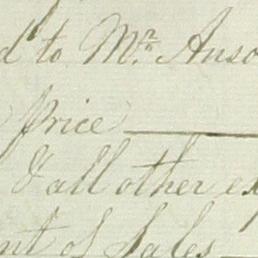 d to Mr. Anso
Price
& all other ex
nt of Sales